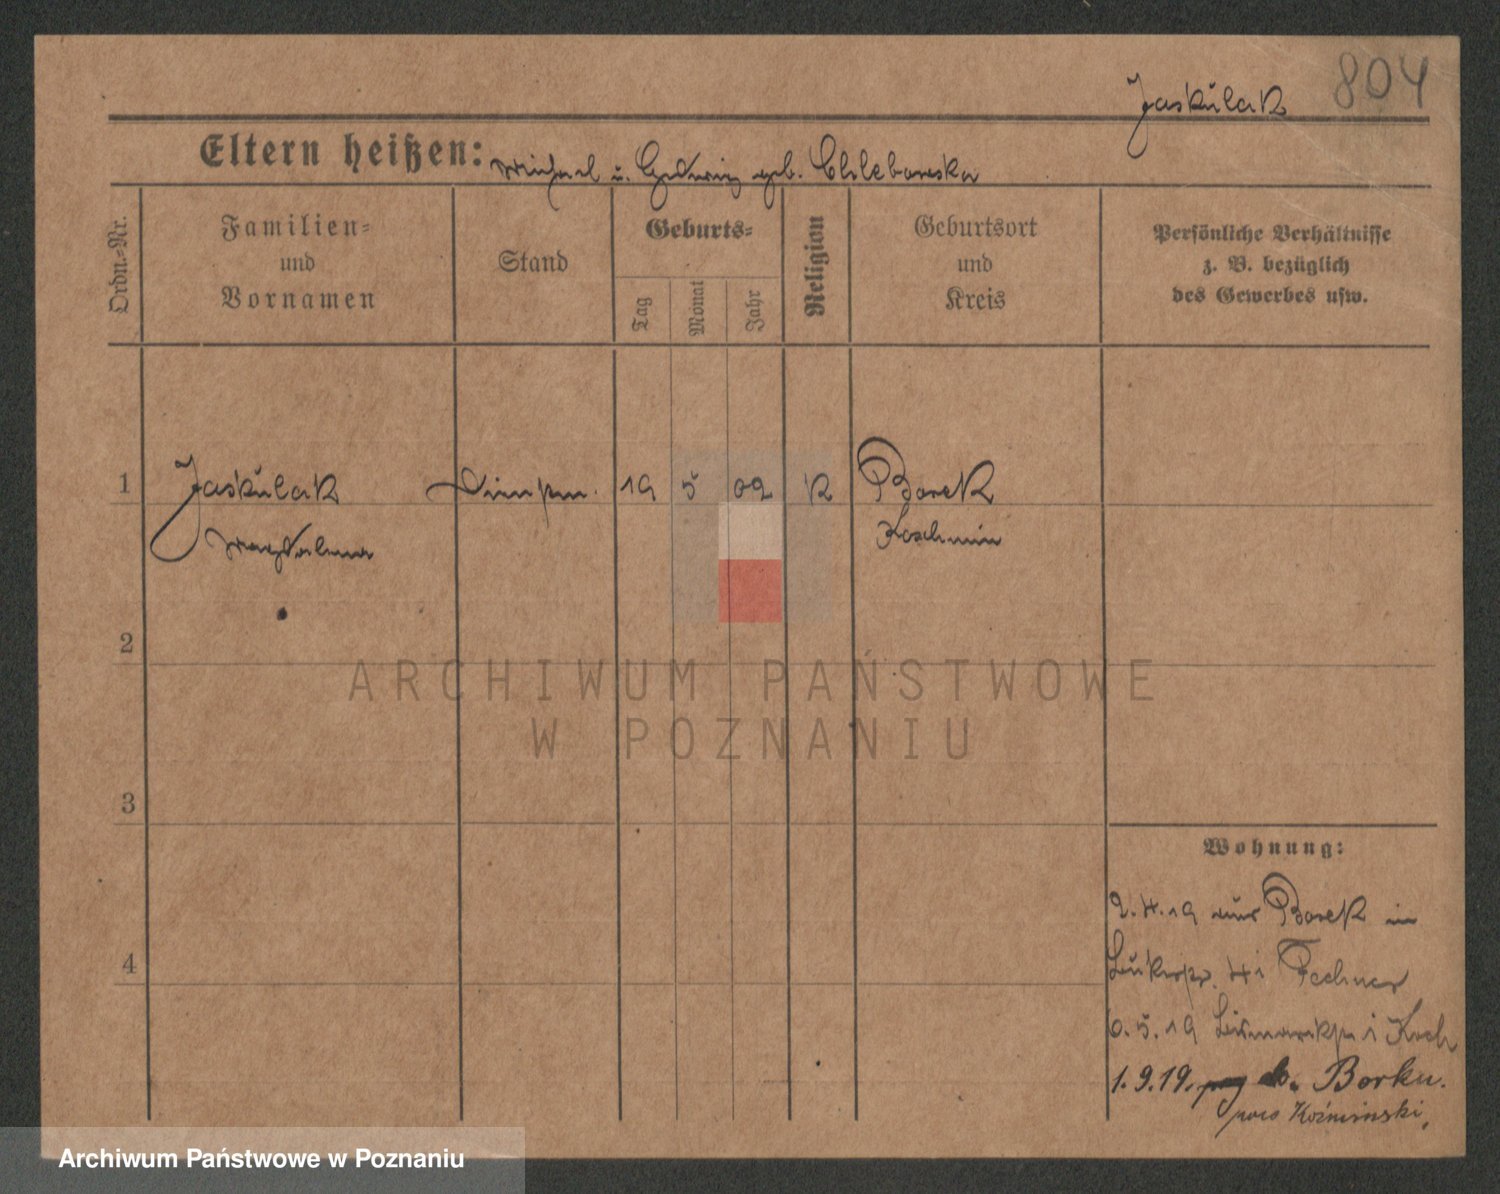 804
Jaskulak
Eltern heißen: Michael u. Hedwig geb. Chlebowska
Ordn.-Nr.
Familien-
und
Vornamen
Stand
Geburts-
Tag
Monat
Jahr
Religion
Geburtsort
und
Kreis
Persönliche Verhältnisse
z. B. bezüglich
des Gewerbes usw.
1 Jaskulak 19 5 02 K Borek
Magdalena Koschmin
2
3
4
Wohnung:
2.4.19 aus Borek in
41 Fechner
6.5.19 Bismarckstr 1 Koch
1.9.19. do. Borku.
pow Koźmiński,
ARCHIWUM PAŃSTWOWE
W POZNANIU
Archiwum Państwowe w Poznaniu